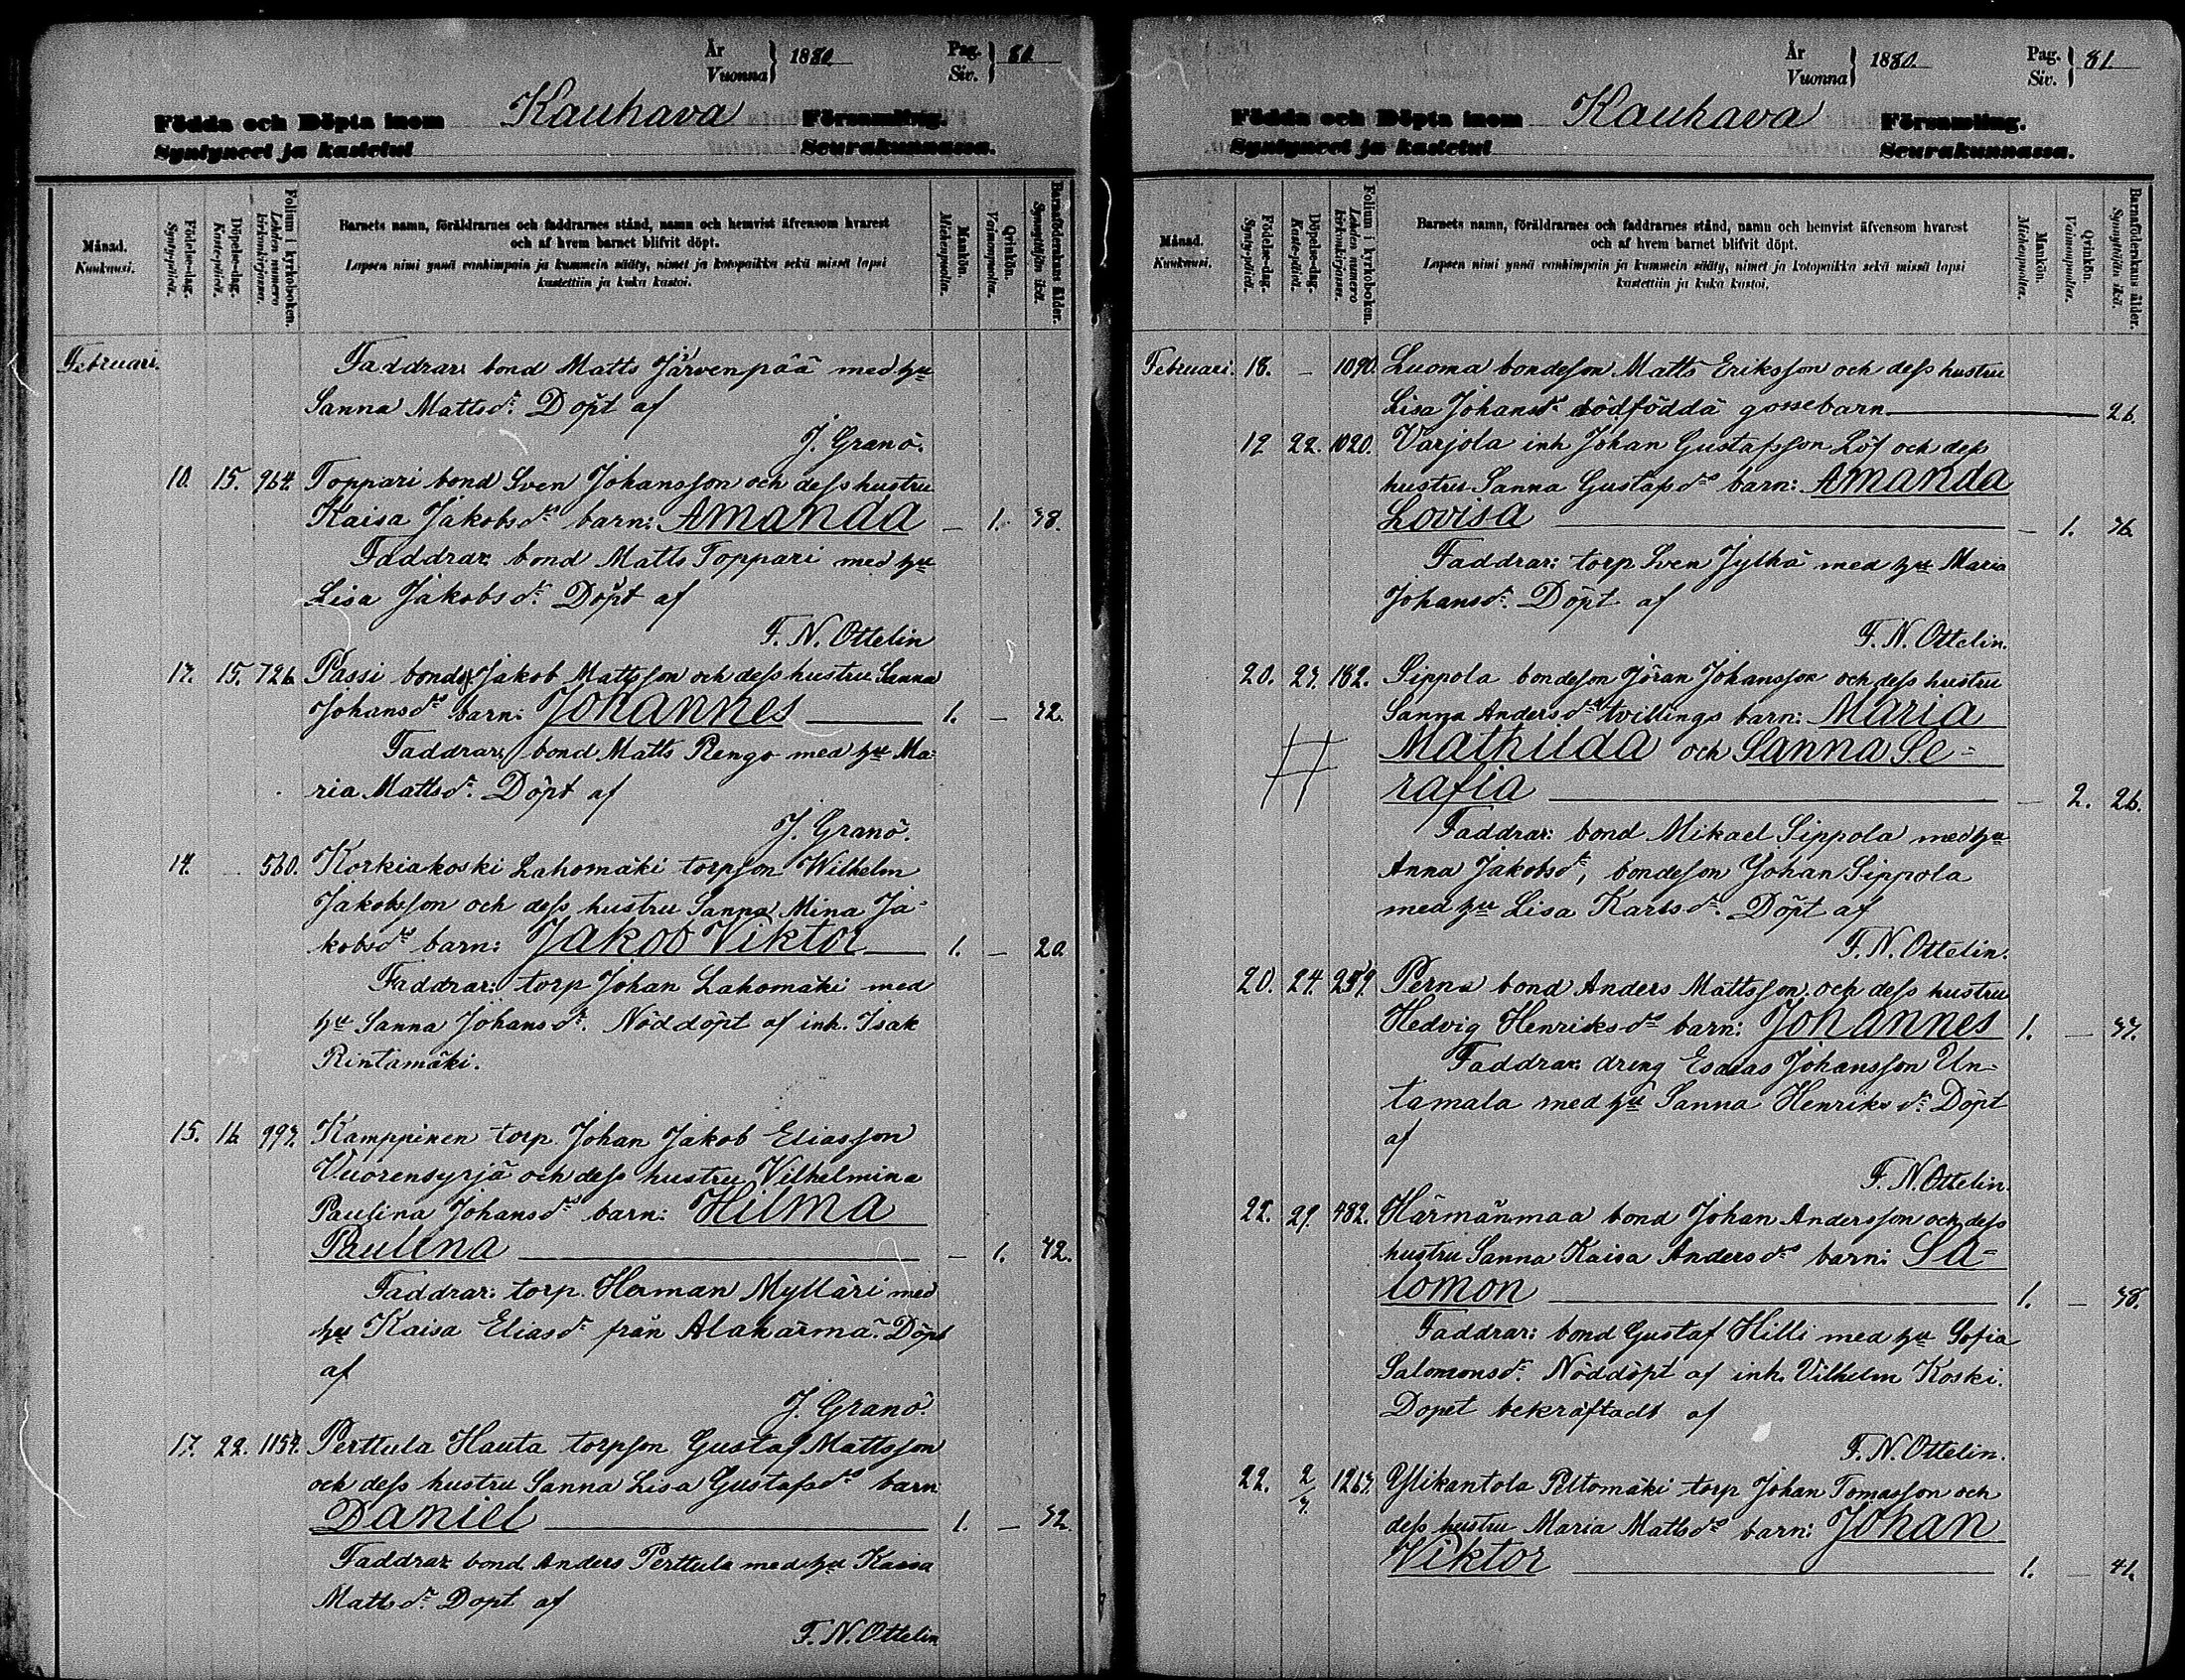 År
Vuonna } 1880
Pag.
Siv. } 80
Födda och Döpta inom Kauhava Församling.
Syntyneet ja kastetut Seurakunnassa.
Månad.
Kuukausi.
Födelse-dag.
Syntypäivä.
Döpelse-dag.
Kaste-päivä.
Folium i kyrkoboken.
Lehden numero kirkonkirjassa.
Barnets namn, föräldrarnes och faddrarnes stånd, namn och hemvist äfvensom hvarest
och af hvem barnet blifvit döpt.
Lapsen nimi ynnä vanhimpain ja kummein sääty, nimet ja kotopaikka sekä missä lapsi
kastettiin ja kuka kastoi.
Mankön.
Miehenpuolta.
Qvinkön.
Vaimonpuolta.
Barnaföderskans ålder.
Synnyttäjän ikä.
Februari. Faddrar: bond Matts Järvenpää med hu
Sanna Mattsdr. Döpt af
J. Granö.
10. 15. 964. Toppari bond Sven Johansson och dess hustru
Kaisa Jakobsdrs barn: Amanda — 1. 38.
Faddrar: bond Matts Toppari med hu
Lisa Jakobsdr. Döpt af
F. N. Ottelin
13. 15. 726. Passi bonds Jakob Mattsson och dess hustru Sanna
Johansdrs barn: Johannes 1. — 32.
Faddrar: bond Matts Rengo med hu Ma-
ria Mattsdr. Döpt af
J. Granö.
14. — 560. Korkiakoski Lahomäki torpson Wilhelm
Jakobsson och dess hustru Sanna Mina Ja-
kobsdrs barn: Jakob Viktor 1. — 20.
Faddrar: torp Johan Lahomäki med
hu Sanna Johansdr. Nöddöpt af inh. Isak
Rintamäki.
15. 16. 993. Kamppinen torp. Johan Jakob Eliasson
Vuorensyrjä och dess hustru Vilhelmina
Paulina Johansdrs barn: Hilma
Paulina — 1. 42.
Faddrar: torp. Herman Mylläri med
hu Kaisa Eliasdr från Alahärmä. Döpt
af
J. Granö.
17. 22. 1154. Perttula Hauta torpson Gustaf Mattsson
och dess hustru Sanna Lisa Gustafsdrs barn
Daniel 1. — 32.
Faddrar: bond Anders Perttula med hu Kaisa
Mattsdr. Döpt af
F. N. Ottelin
År
Vuonna } 1880.
Pag.
Siv. } 81.
Födda och Döpta inom Kauhava Församling.
Syntyneet ja kastetut Seurakunnassa.
Månad.
Kuukausi.
Födelse-dag.
Syntypäivä.
Döpelse-dag.
Kaste-päivä.
Folium i kyrkoboken.
Lehden numero kirkonkirjassa.
Barnets namn, föräldrarnes och faddrarnes stånd, namn och hemvist äfvensom hvarest
och af hvem barnet blifvit döpt.
Lapsen nimi ynnä vanhimpain ja kummein sääty, nimet ja kotopaikka sekä missä lapsi
kastettiin ja kuka kastoi.
Mankön.
Miehenpuolta.
Qvinkön.
Vaimonpuolta.
Barnaföderskans ålder.
Synnyttäjän ikä.
Februari. 18. — 1090. Luoma bondeson Matts Eriksson och dess hustru
Lisa Johansdrs dödfödda gossebarn 26.
19 22. 1020. Varjola inh Johan Gustafsson Löf och dess
hustru Sanna Gustafsdrs barn: Amanda
Lovisa — 1. 36.
Faddrar: torp Sven Jylhä med hu Maria
Johansdr. Döpt af
F. N. Ottelin.
20. 23. 182. Sippola bondeson Jöran Johansson och dess hustru
Sanna Andersdrs tvillings barn: Maria
Mathilda och Sanna Se-
rafia — 2. 26.
Faddrar: bond Mikael Sippola med hu
Anna Jakobsdr, bondeson Johan Sippola
med hu Lisa Karlsdr. Döpt af
F. N. Ottelin.
20. 24. 259. Perna bond Anders Mattsson och dess hustru
Hedvig Henriksdrs barn: Johannes 1. — 33.
Faddrar: dreng Esaias Johansson Un-
tamala med hu Sanna Henriksdr. Döpt
af
F. N. Ottelin.
22. 29. 482. Härmänmaa bond Johan Andersson och dess
hustru Sanna Kaisa Andersdrs barn: Sa-
lomon 1. — 38.
Faddrar: bond Gustaf Hilli med hu Sofia
Salomonsdr. Nöddöpt af inh. Vilhelm Koski.
Dopet bekräftadt af
F. N. Ottelin.
22. 2/3. 1263. Ylikantola Peltomäki torp Johan Tomasson och
dess hustru Maria Mattsdrs barn: Johan
Viktor 1. — 41.